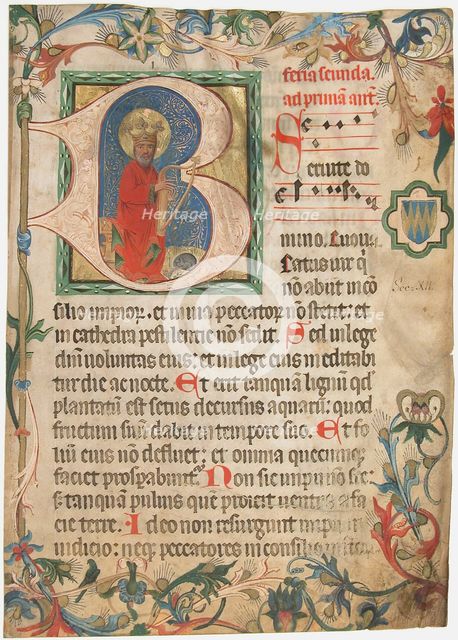 feria secunda.
ad primā ant.
Seruite do
mino. Euou
Beatus uir q
nō abiit in cō
silio impioꝝ. et in uia peccatoꝝ nō stetit: et
in cathedra pestilentie nō sedit. Sed in lege
dn̄i voluntas eius: et in lege eius meditabi
tur die ac nocte. Et erit tanquā lignū qd
plantatū est secus decursus aquarū: quod
fructum suū dabit in tempore suo. Et fo
liū eius nō defluet: et omnia quecumq
faciet prosꝑabunt'. Non sic impii nō sic:
s tanquā puluis quē proicit uentus a fa
cie terre. Ideo non resurgunt impii in
iudicio: neq peccatores in consilio
Sec. XII.
Heritage
Heritage